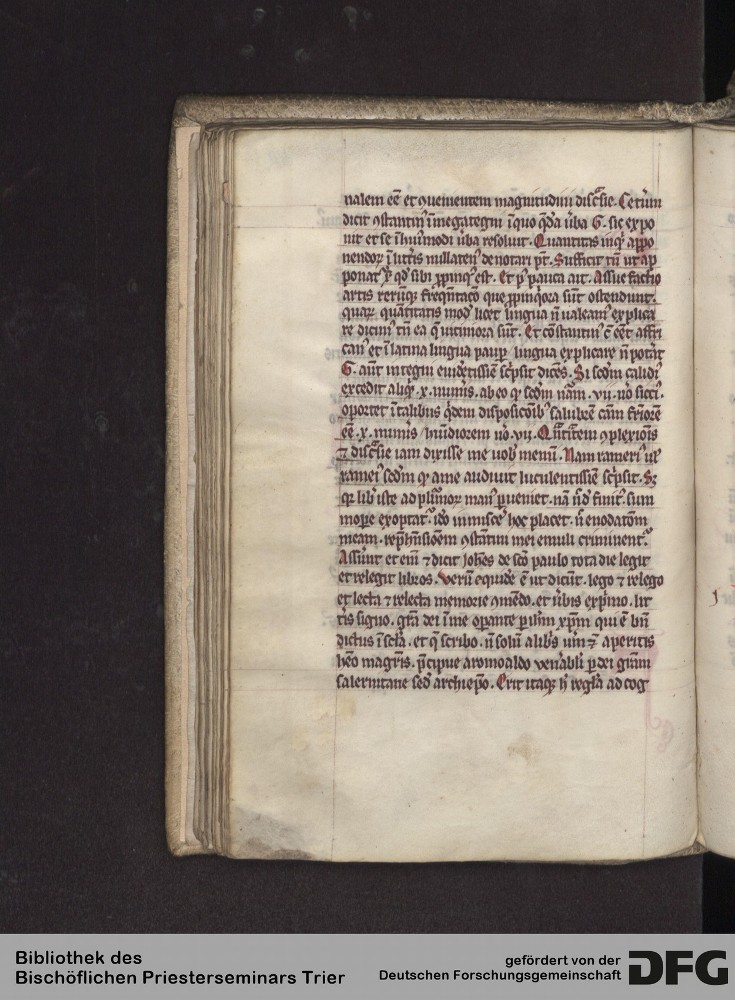 nalem eē et ꝯuenientem magnitudini discᷓsie. Ceterum
dicit ꝯstantinꝰ i megategni i quo qᷓda uba G. sic expo
nit et se i hui modi uba resoluit. Quantitatis inqͥ appo
nendoꝝ i lutris nullatenꝰ denotari pt. Sufficit tn̄ ut ap
ponatᷣ qd sibi ppinqͥ est. Et pꝰ pauca ait. Assuefactio
artis
quaꝝ quātitatis modꝰ licet lingua n̄ ualeamꝰ explica
re dicimꝰ tn̄ ea q̄ uicinora sūt. Et cōstantinꝰ
canꝰ et i latina lingua paup lingua explicare n̄ potat
G. aūt in tegni euidētissie sc̄psit dicēs. Si sedm calidi
excedit aliqͥ .x. numis. ab eo qͥ sedm nām .vii. uͦ sicci.
oportet i talibus qͥdem dispositōibꝰ salubrē cām frīorē
eē .x. numis humidiorem uͦ .vii. Qn̄titatem ꝯplexiōis
⁊ discᷓsie iam dixisse me uob memī. Nam ramerꝰ ul
rameꝰ sedm qͥ a me audiuit luculentissie sc̄psit. Sꝫ
qꝛ libꝰ iste ad plimoꝝ manꝰ pueniet.
mope exoptatᷣ. ido hoc placet. n̄ enodatōm
meam. reph̄nsioēm ꝯstantini mei emuli criminentᷣ.
Assūt et em ⁊ dicit Joh̄es de scō paulo tota die legit
et relegit libros. Verū equidē ē ut dicūt. lego ⁊ relego
et lecta ⁊ relecta memorie ꝯmēdo. et ubis exp̄mo. lit
tis signo. gr̄a dei i me opante p ihm xp̄m qui ē bn̄
dictus i scl̄a. et q̄ scribo. n̄ solū alibꝰ aperitis
magris. p̄cipue aromoaldo uenabli p dei gram
salernitane sedꝰ archiep̄o. Erit itaqꝫ h̄ regla ad cog
Bibliothek des
Bischöflichen Priesterseminars Trier
gefördert von der
Deutschen Forschungsgemeinschaft
DFG